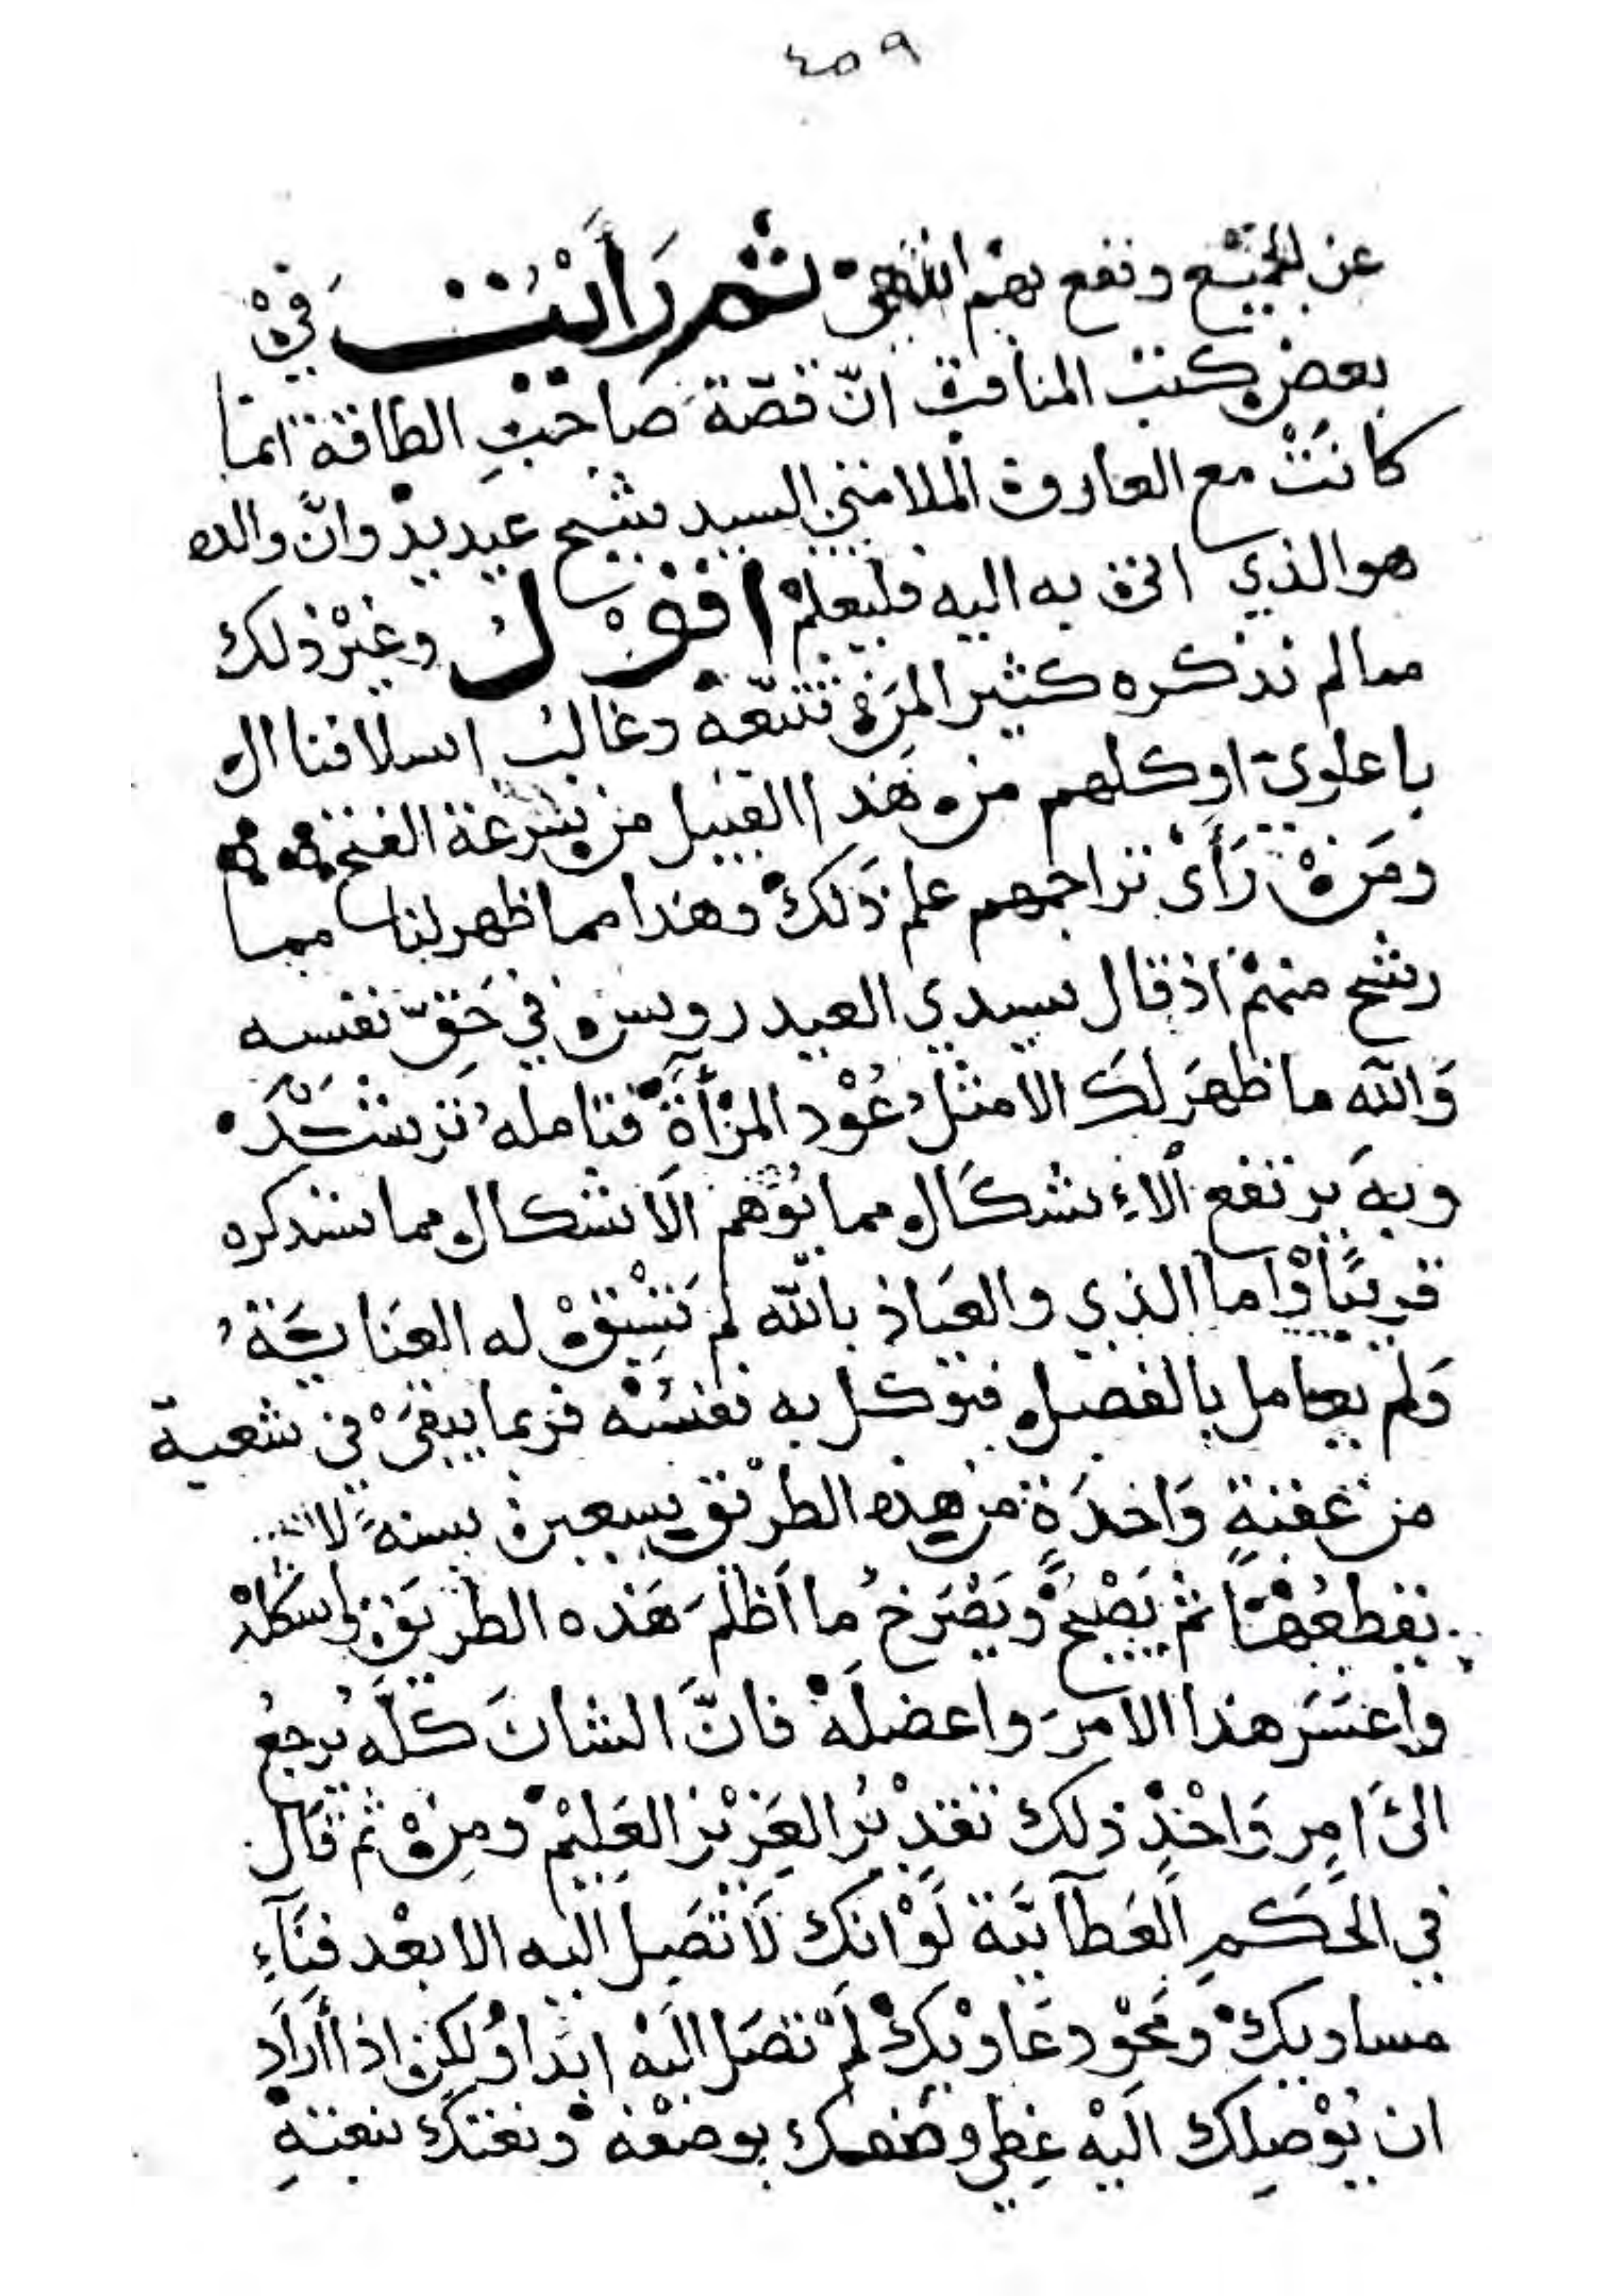 ٤٥٩
عن الجميع ونفع بهم اللهم ثم رَأَيْت في
بعض كتب المناقب انّ قصّة صاحب الطاقة انما
كانَتْ مع العارف الملامتي السيد شيخ عيديد وانّ والده
هو الذي اتى به اليه فليعلم اقول وغير ذلك
مما لم نذكره كثير لمن تتبّعه وغالب اسلافنا ال
باعلوي او كلهم من هذا القبيل من سرعة الفتح
ومَنْ رَأَى تراجمهم علم ذَلك وهذا مما ظهر لنا مما
رشح منهم اذ قال سيدي العيدروس في حَقّ نفسه
وَالله ما ظهَر لكَ الا مثل عُوْد المرْأَة فتامله تَرشد
وبه يرتفع الاِشكَال مما يوهم الاشكال مما سنذكره
قريبًا واما الذي والعيَاذ بالله لم تَسْبقْ له العنَايَة
وَلم يعامل بالفضل فتوكل به نفسُه فربما يبقى في شعبة
من عقبةٍ وَاحدَةٍ من هذه الطرْيق سبعين سنة لا
يقطعُهَا ثم يَصْيحُ ويَصْرَخ ما اَظلَم هَذه الطريق واشكلْ
واعسَرَ هذا الامرَ واعضلَهْ فانَّ الشانَ كلَّه يُرجعُ
الىَ امرٍ وَاحْدٍ ذلك تقدْيرُ العَزْيز العَليْم ومِنْ ثم قال
في الحَكمِ العَطآئيَّة لَوْ انك لَا تَصَل اليه الا بعْد فنَآءِ
مساويك ومَحْو دعَاوْيكْ لَمْ تصَل اليْه ابَدا ولكن اذا أرَادَ
ان يُوْصِلك اليْه غطى وصفك بوصْفه ونعتكَ بنعتهِ